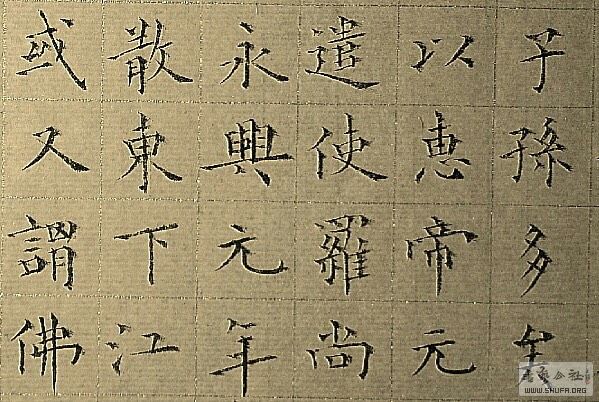 子孫多矣
以惠帝元
遣使羅尚
永興元年
散東下江
或又謂佛
WWW.SHUFA.ORG